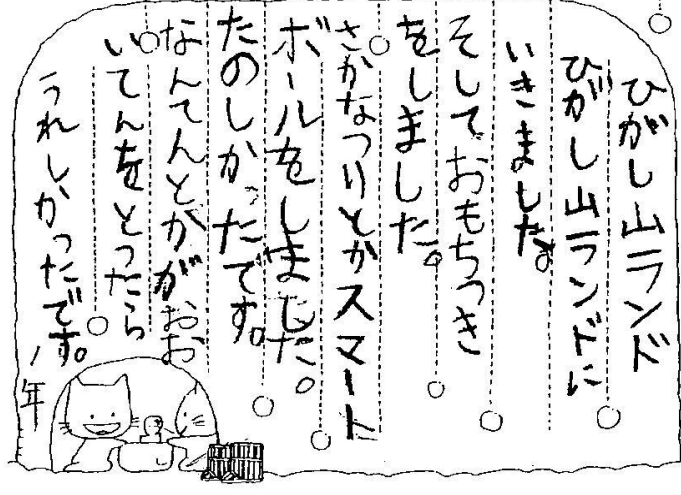 ひがし山ランド
ひがし山ランドに
いきました。
そしておもちつき
をしました。
さかなつりとかスマート
ボールをしました。
たのしかったです。
なんてんとかがおお
いてんをとったら
うれしかったです。
1年